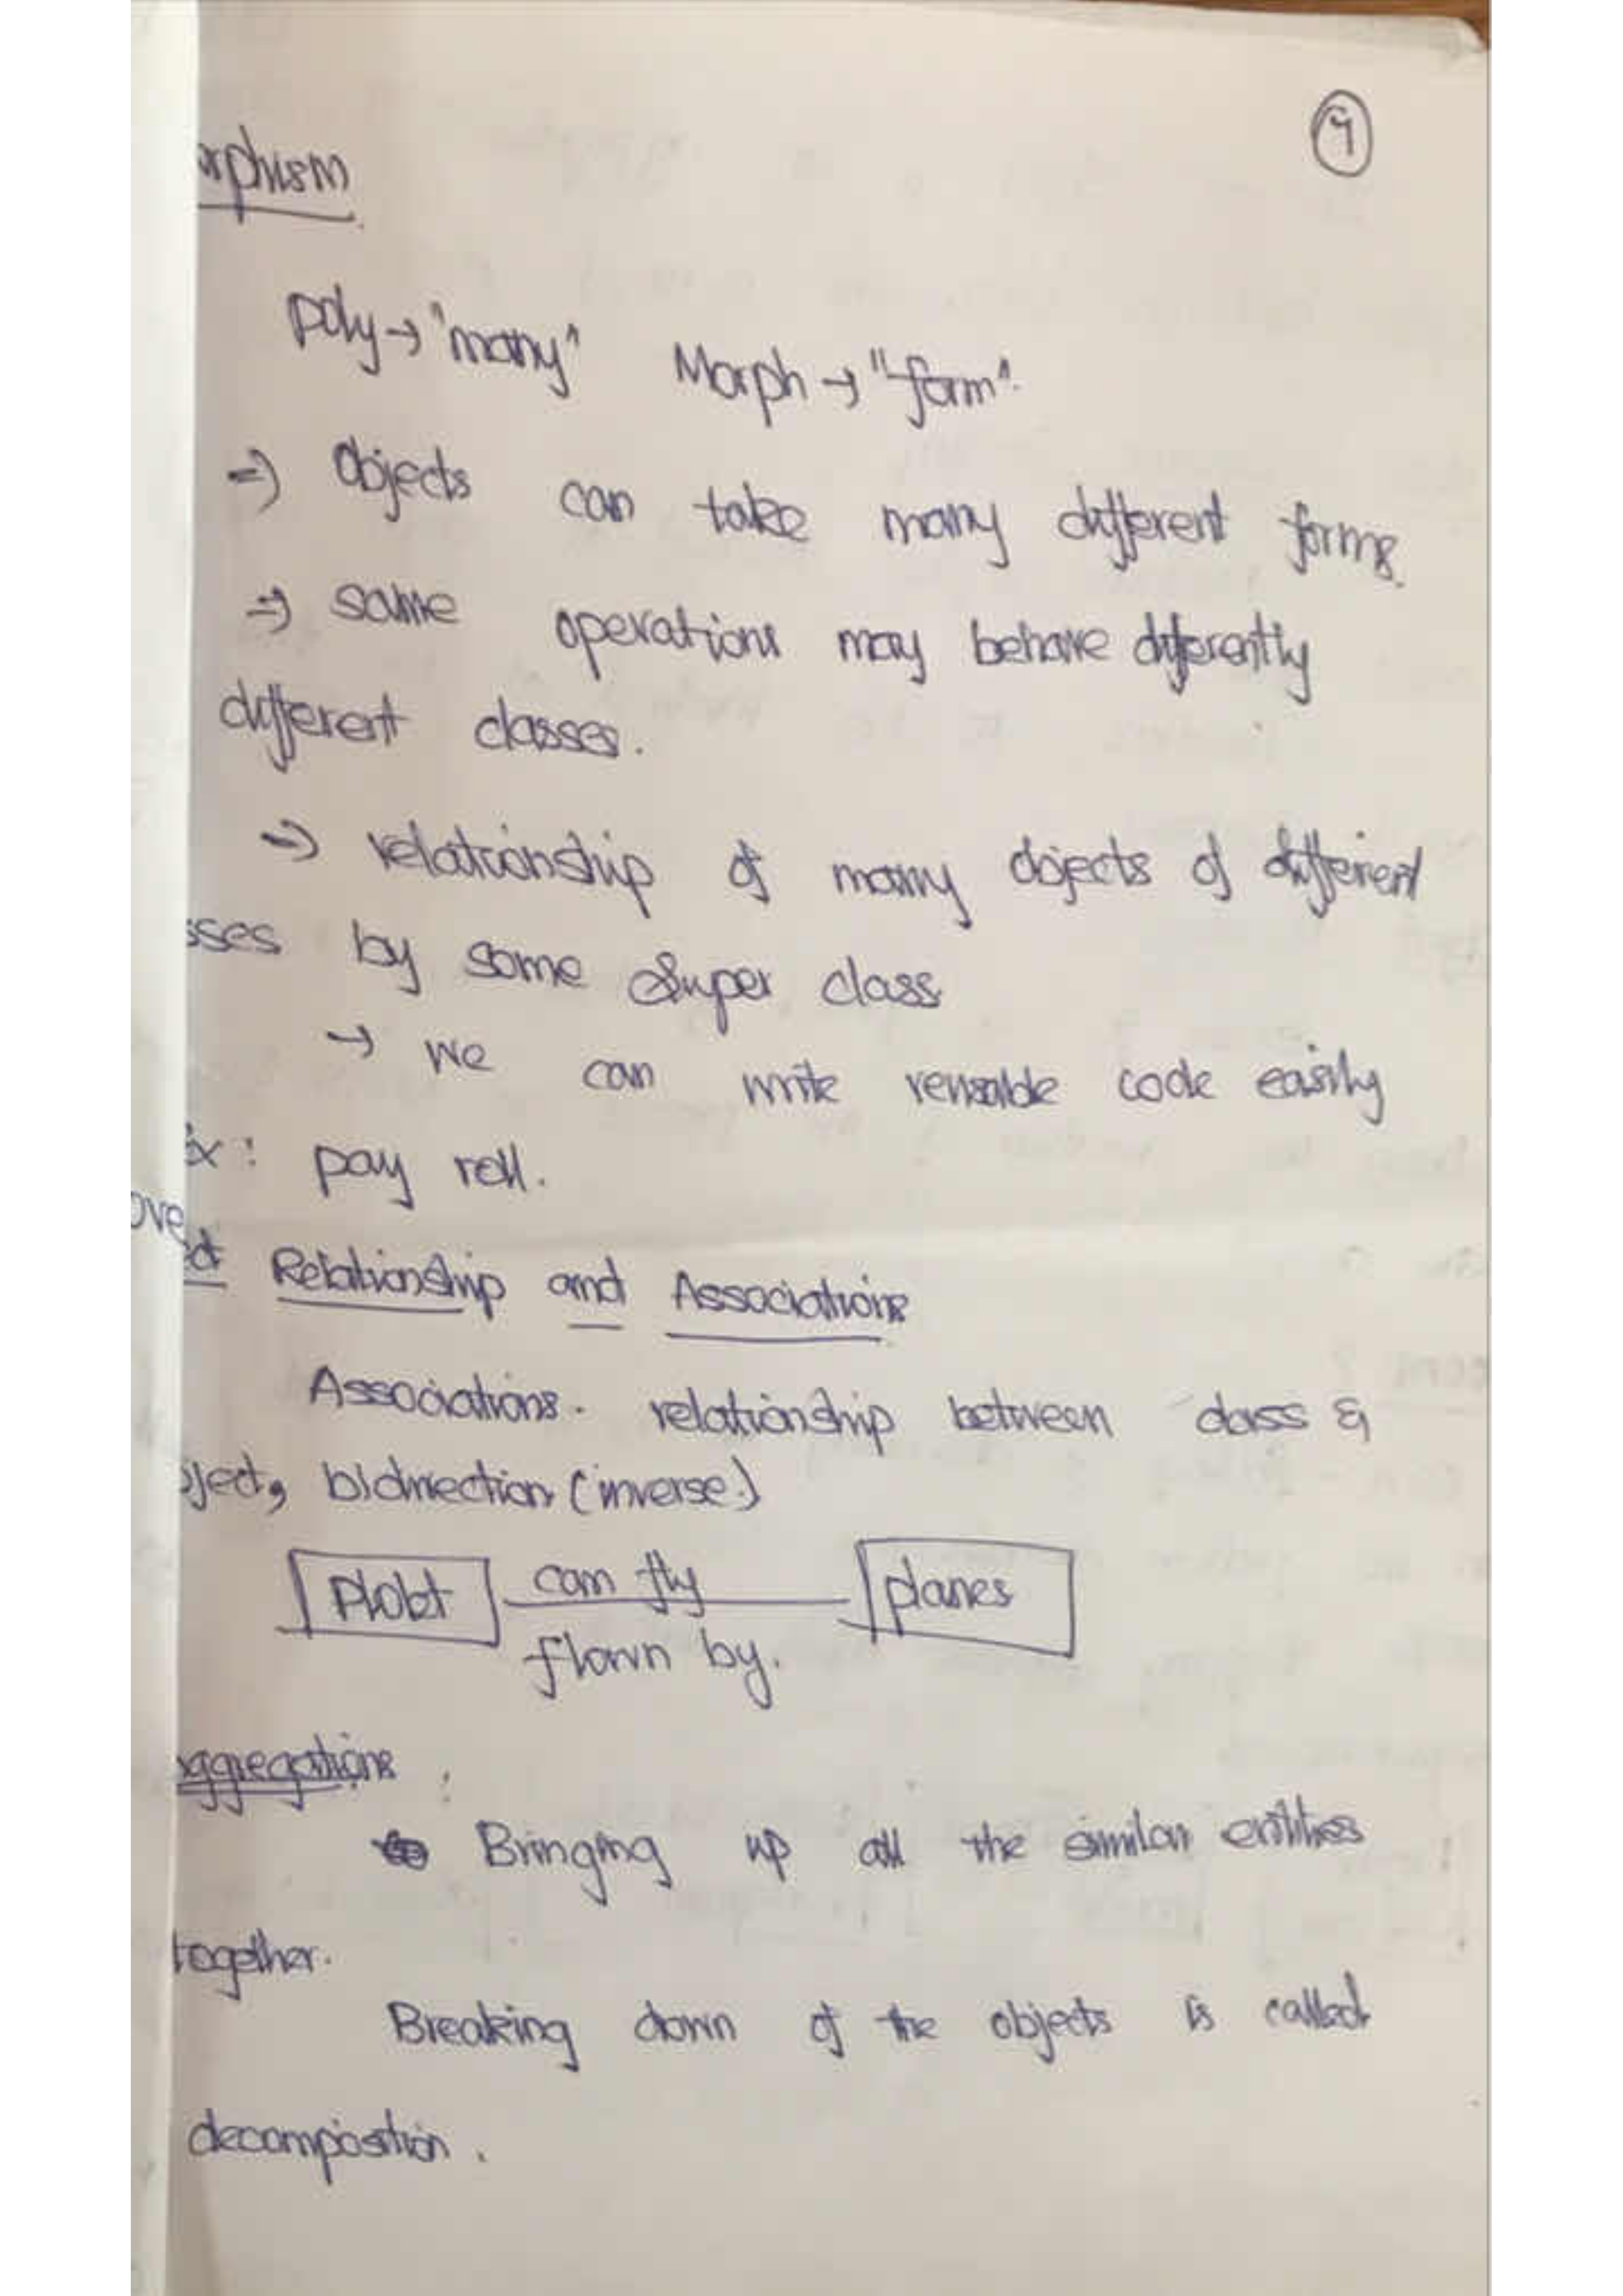 9
orphism
poly → "many" Morph → "form".
⇒ Objects can take many different forms.
⇒ same operations may behave differently
different classes.
⇒ relationship of many objects of different
sses by some Super class
→ we can write reusable code easily
Ex: pay roll.
ove
ct Relationship and Associations
Associations. relationship between class &
bject, bidirection (inverse.)
can fly
Pilot planes
flown by.
aggregations :
Bringing up all the similar entities
together.
Breaking down of the objects is called
decomposition.